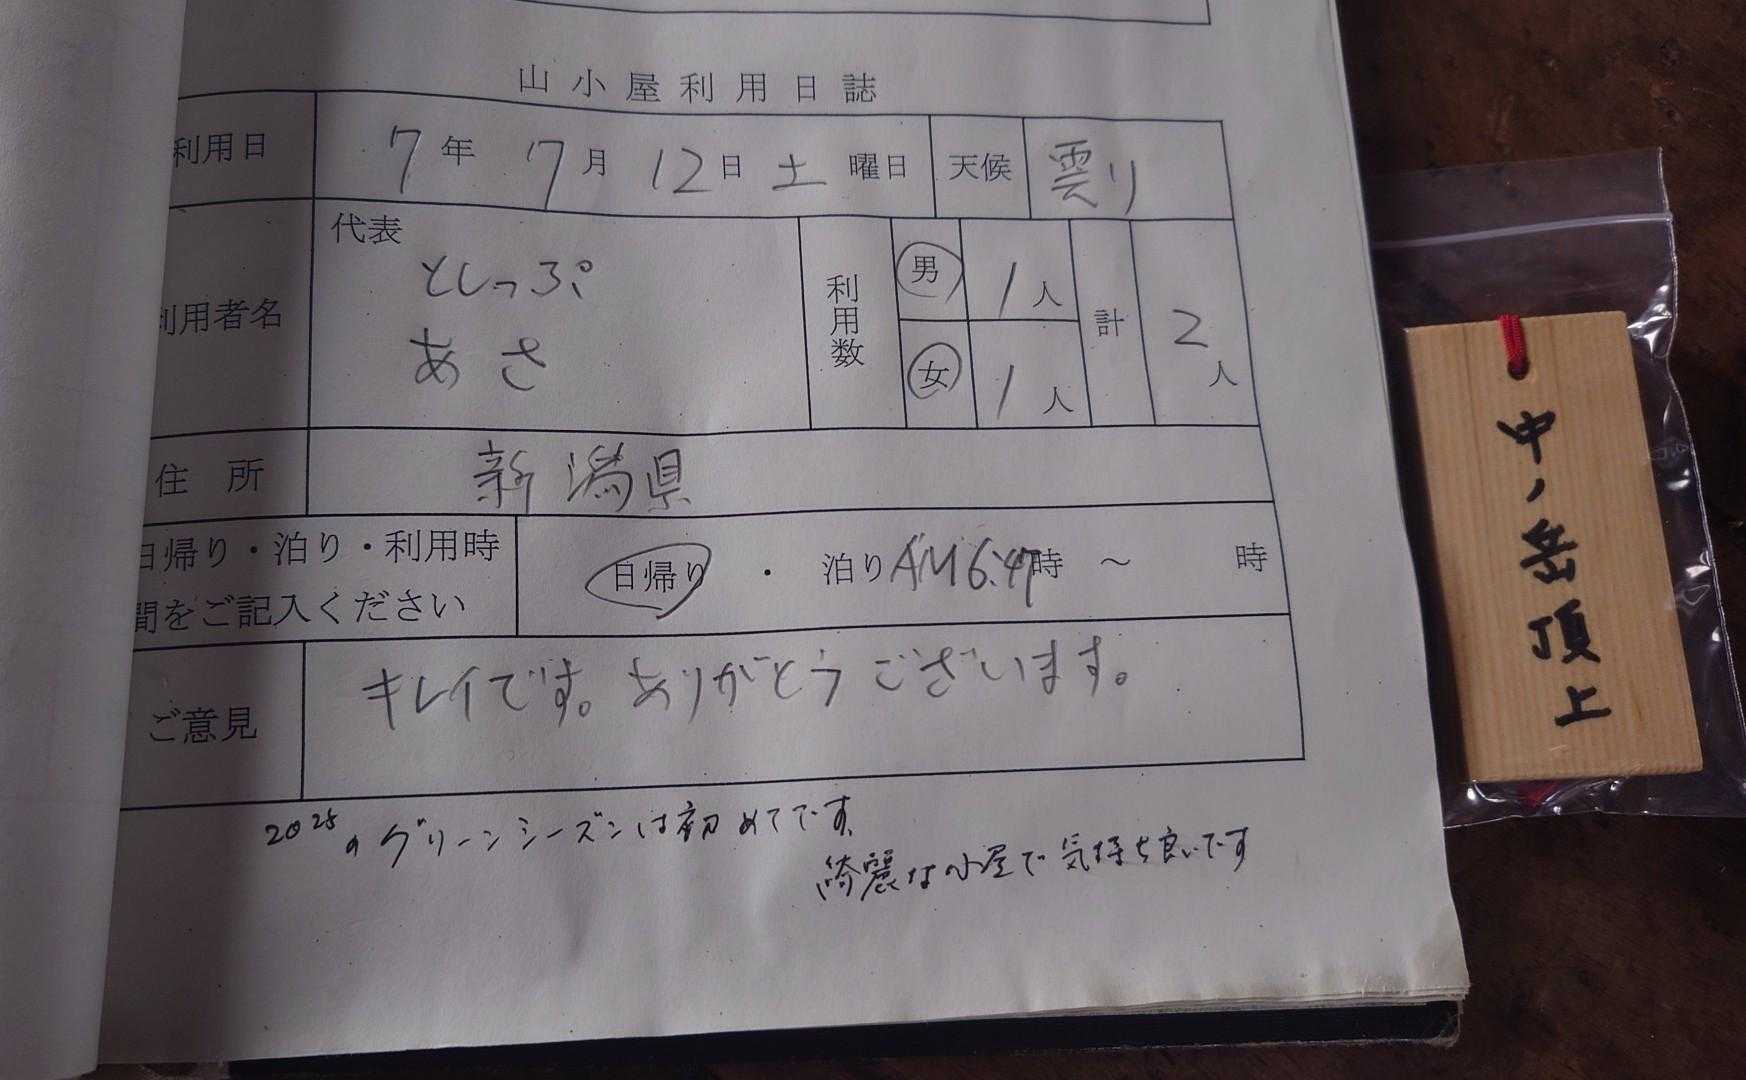 山小屋利用日誌
利用日 7年 7月 12日 土曜日 天候 雲り
利用者名 代表 としっぷ
あさ
利用数 男 1人 女 1人 計 2人
住所 新潟県
日帰り・泊り・利用時
間をご記入ください
日帰り ・ 泊り AM6:47時 ～ 時
ご意見 キレイです。ありがとうございます。
2025のグリーンシーズンは初めてです
綺麗な小屋で気持ち良いです
中ノ岳頂上